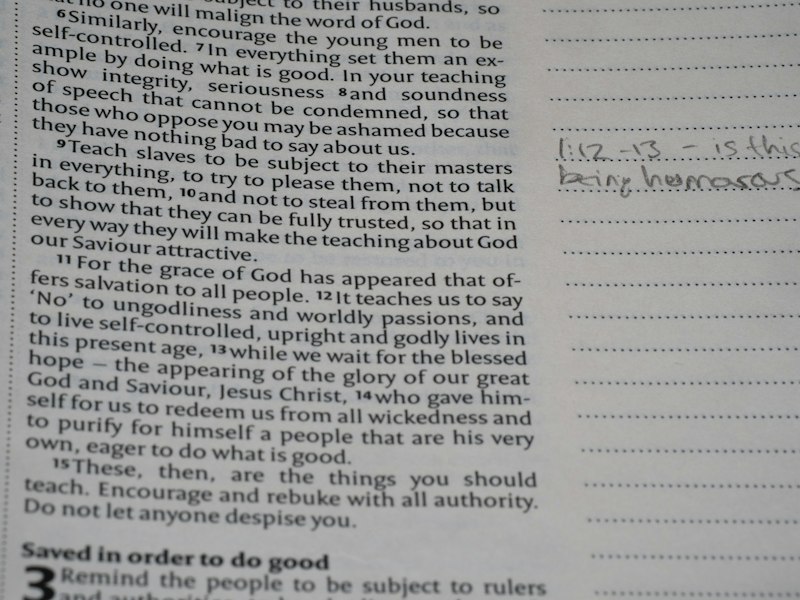 subject to their husbands, so
no one will malign the word of God.
6 Similarly, encourage the young men to be
self-controlled. 7 In everything set them an ex-
ample by doing what is good. In your teaching
show integrity, seriousness 8 and soundness
of speech that cannot be condemned, so that
those who oppose you may be ashamed because
they have nothing bad to say about us.
9 Teach slaves to be subject to their masters
in everything, to try to please them, not to talk
back to them, 10 and not to steal from them, but
to show that they can be fully trusted, so that in
every way they will make the teaching about God
our Saviour attractive.
11 For the grace of God has appeared that of-
fers salvation to all people. 12 It teaches us to say
‘No’ to ungodliness and worldly passions, and
to live self-controlled, upright and godly lives in
this present age, 13 while we wait for the blessed
hope – the appearing of the glory of our great
God and Saviour, Jesus Christ, 14 who gave him-
self for us to redeem us from all wickedness and
to purify for himself a people that are his very
own, eager to do what is good.
15 These, then, are the things you should
teach. Encourage and rebuke with all authority.
Do not let anyone despise you.
Saved in order to do good
3 Remind the people to be subject to rulers
1:12-13 - is this
being humorous